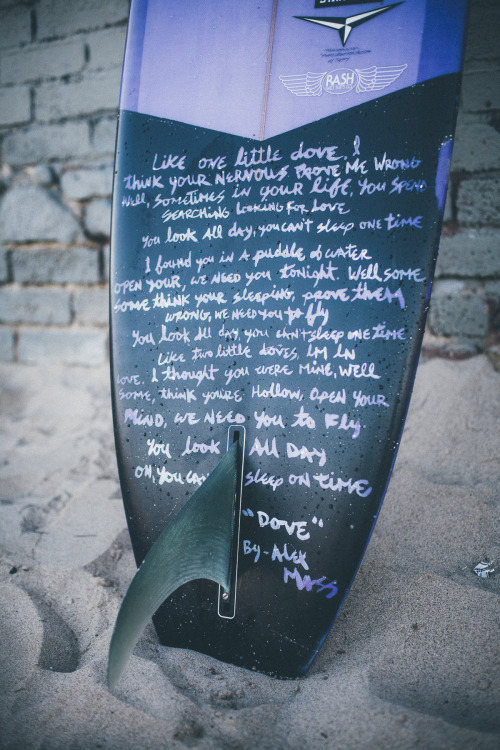 RASH
Like one little dove. I
think your nervous prove me wrong
Well, sometimes in your life, you spend
searching looking for love
You look all day, you can't sleep one time
I found you in a puddle of water
open your, we need you tonight. Well some
some think your sleeping, prove them
wrong, we need you to fly
You look all day, you can't sleep one time
Like two little doves, I'm in
love. I thought you were mine, well
Some, think you're Hollow, open your
Mind, we need you to fly.
You look All Day
Oh, you can sleep on time
"Dove"
By-Alex
Mass